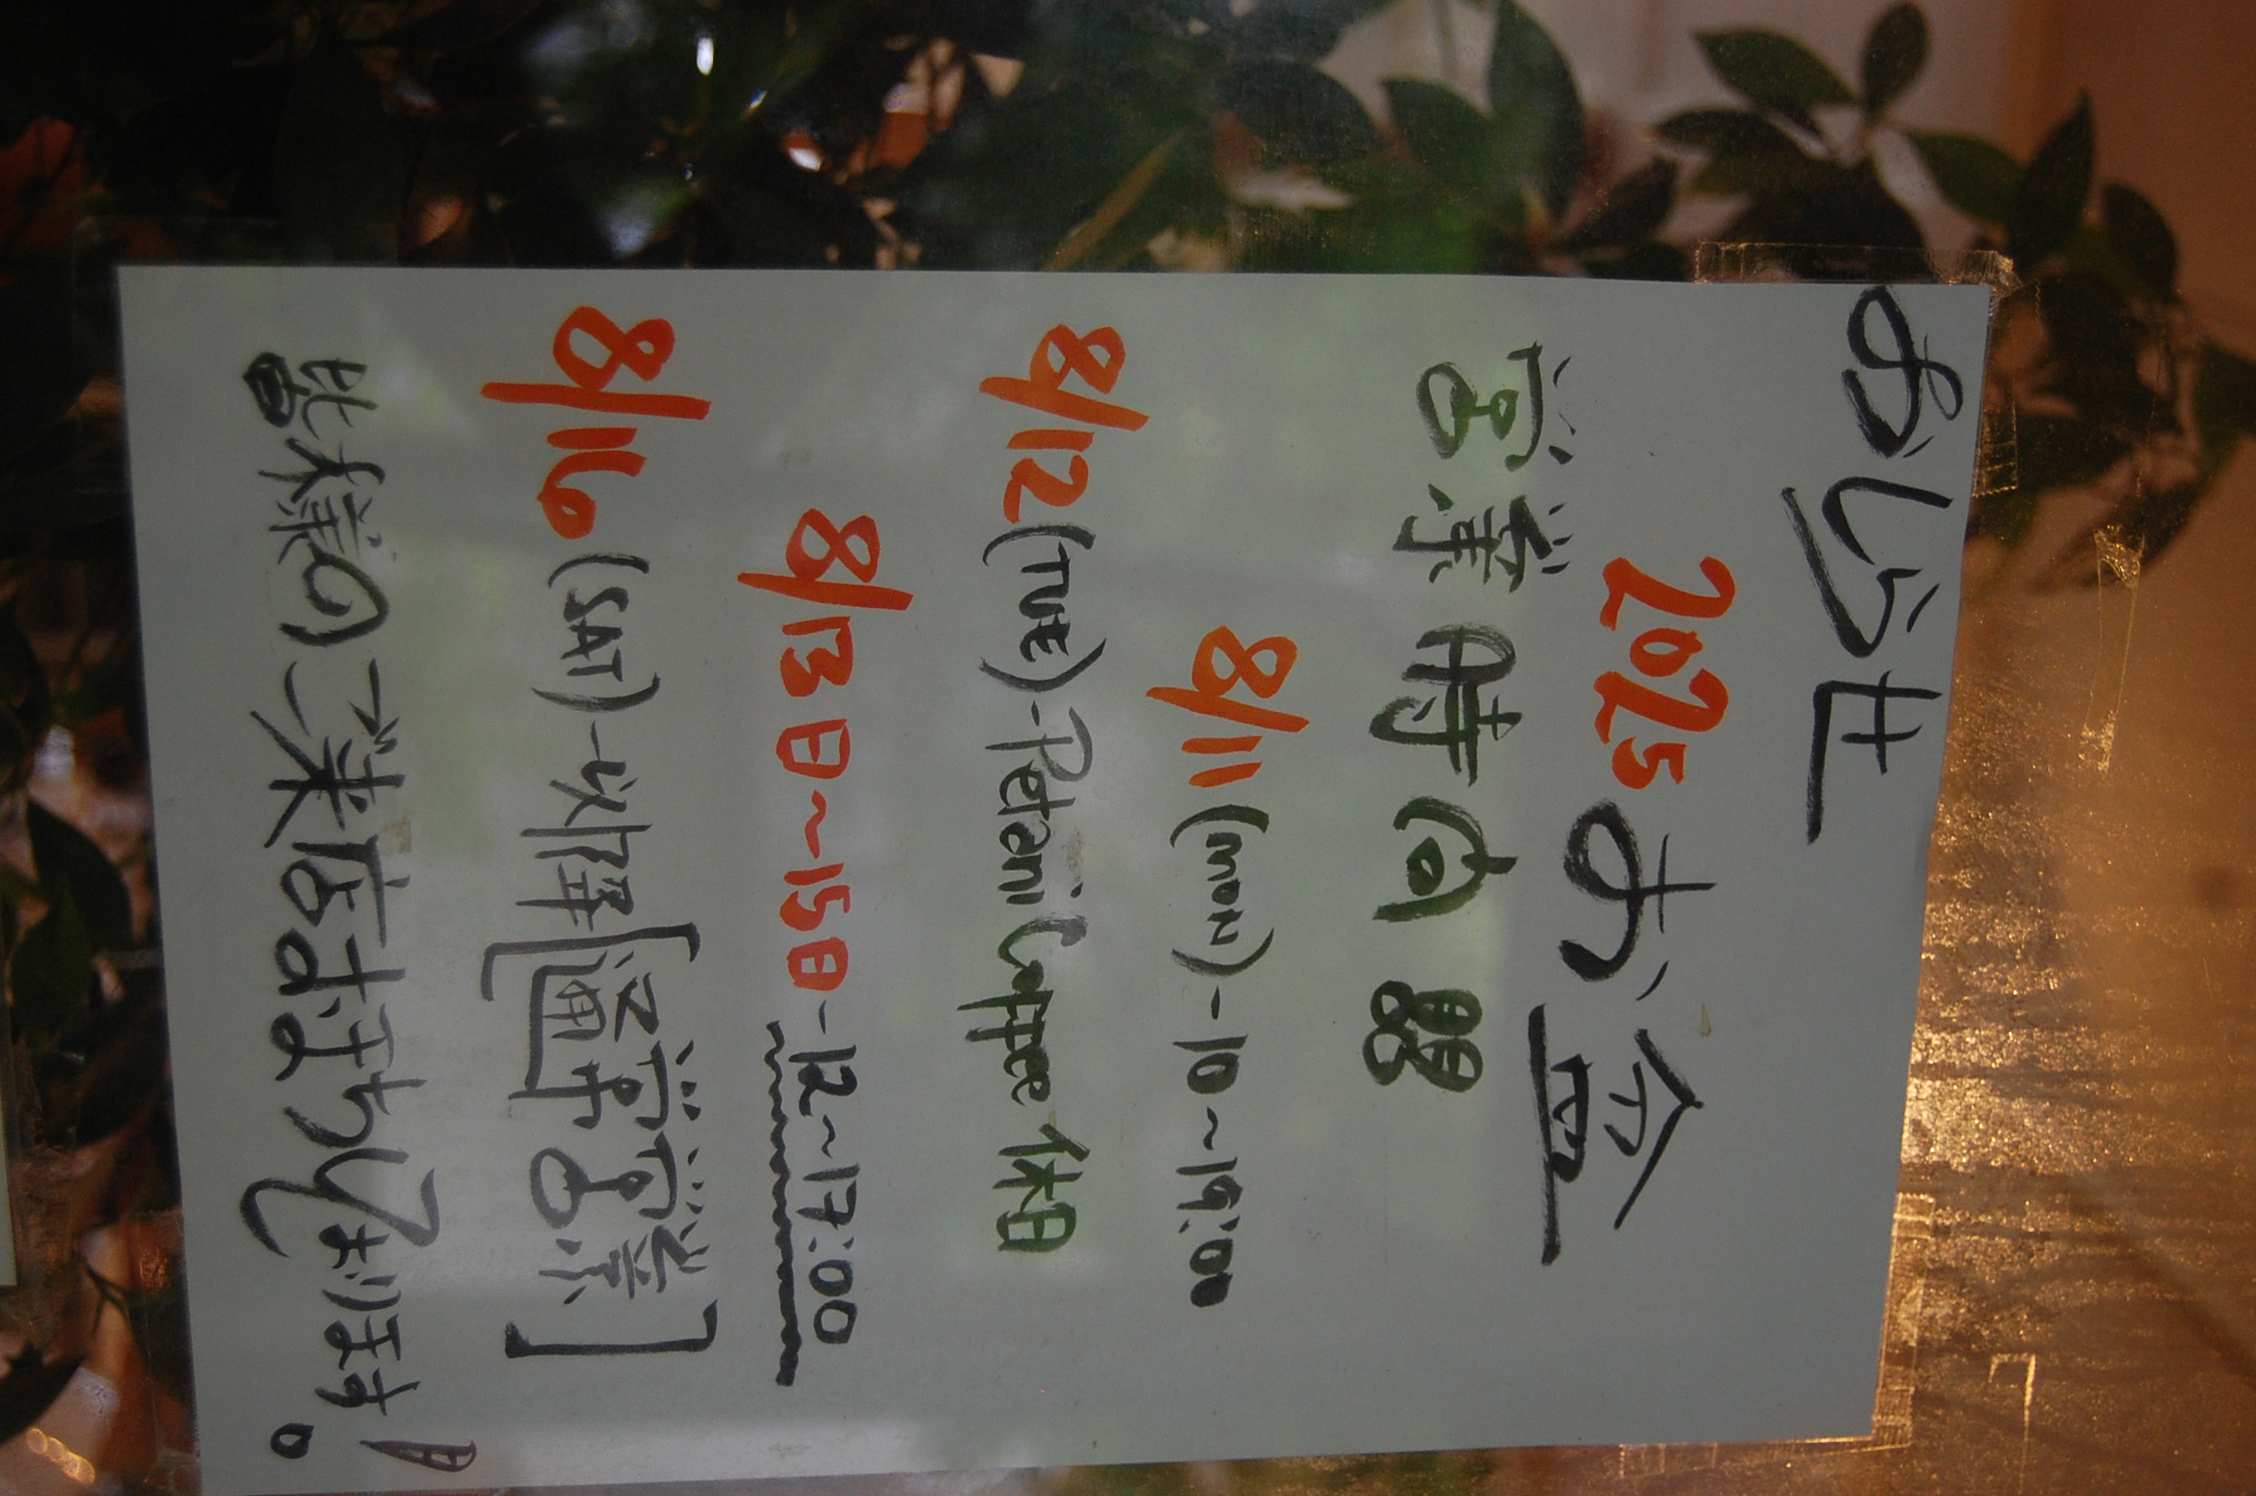 おしらせ
2025 お盆
営業時間
8/11(MON)-10~19:00
8/12(TUE)-Petani Coffee 休日
8/13日~15日-12~17:00
8/16(SAT)-以降[通常営業]
皆様のご来店お待ちしてお〼。